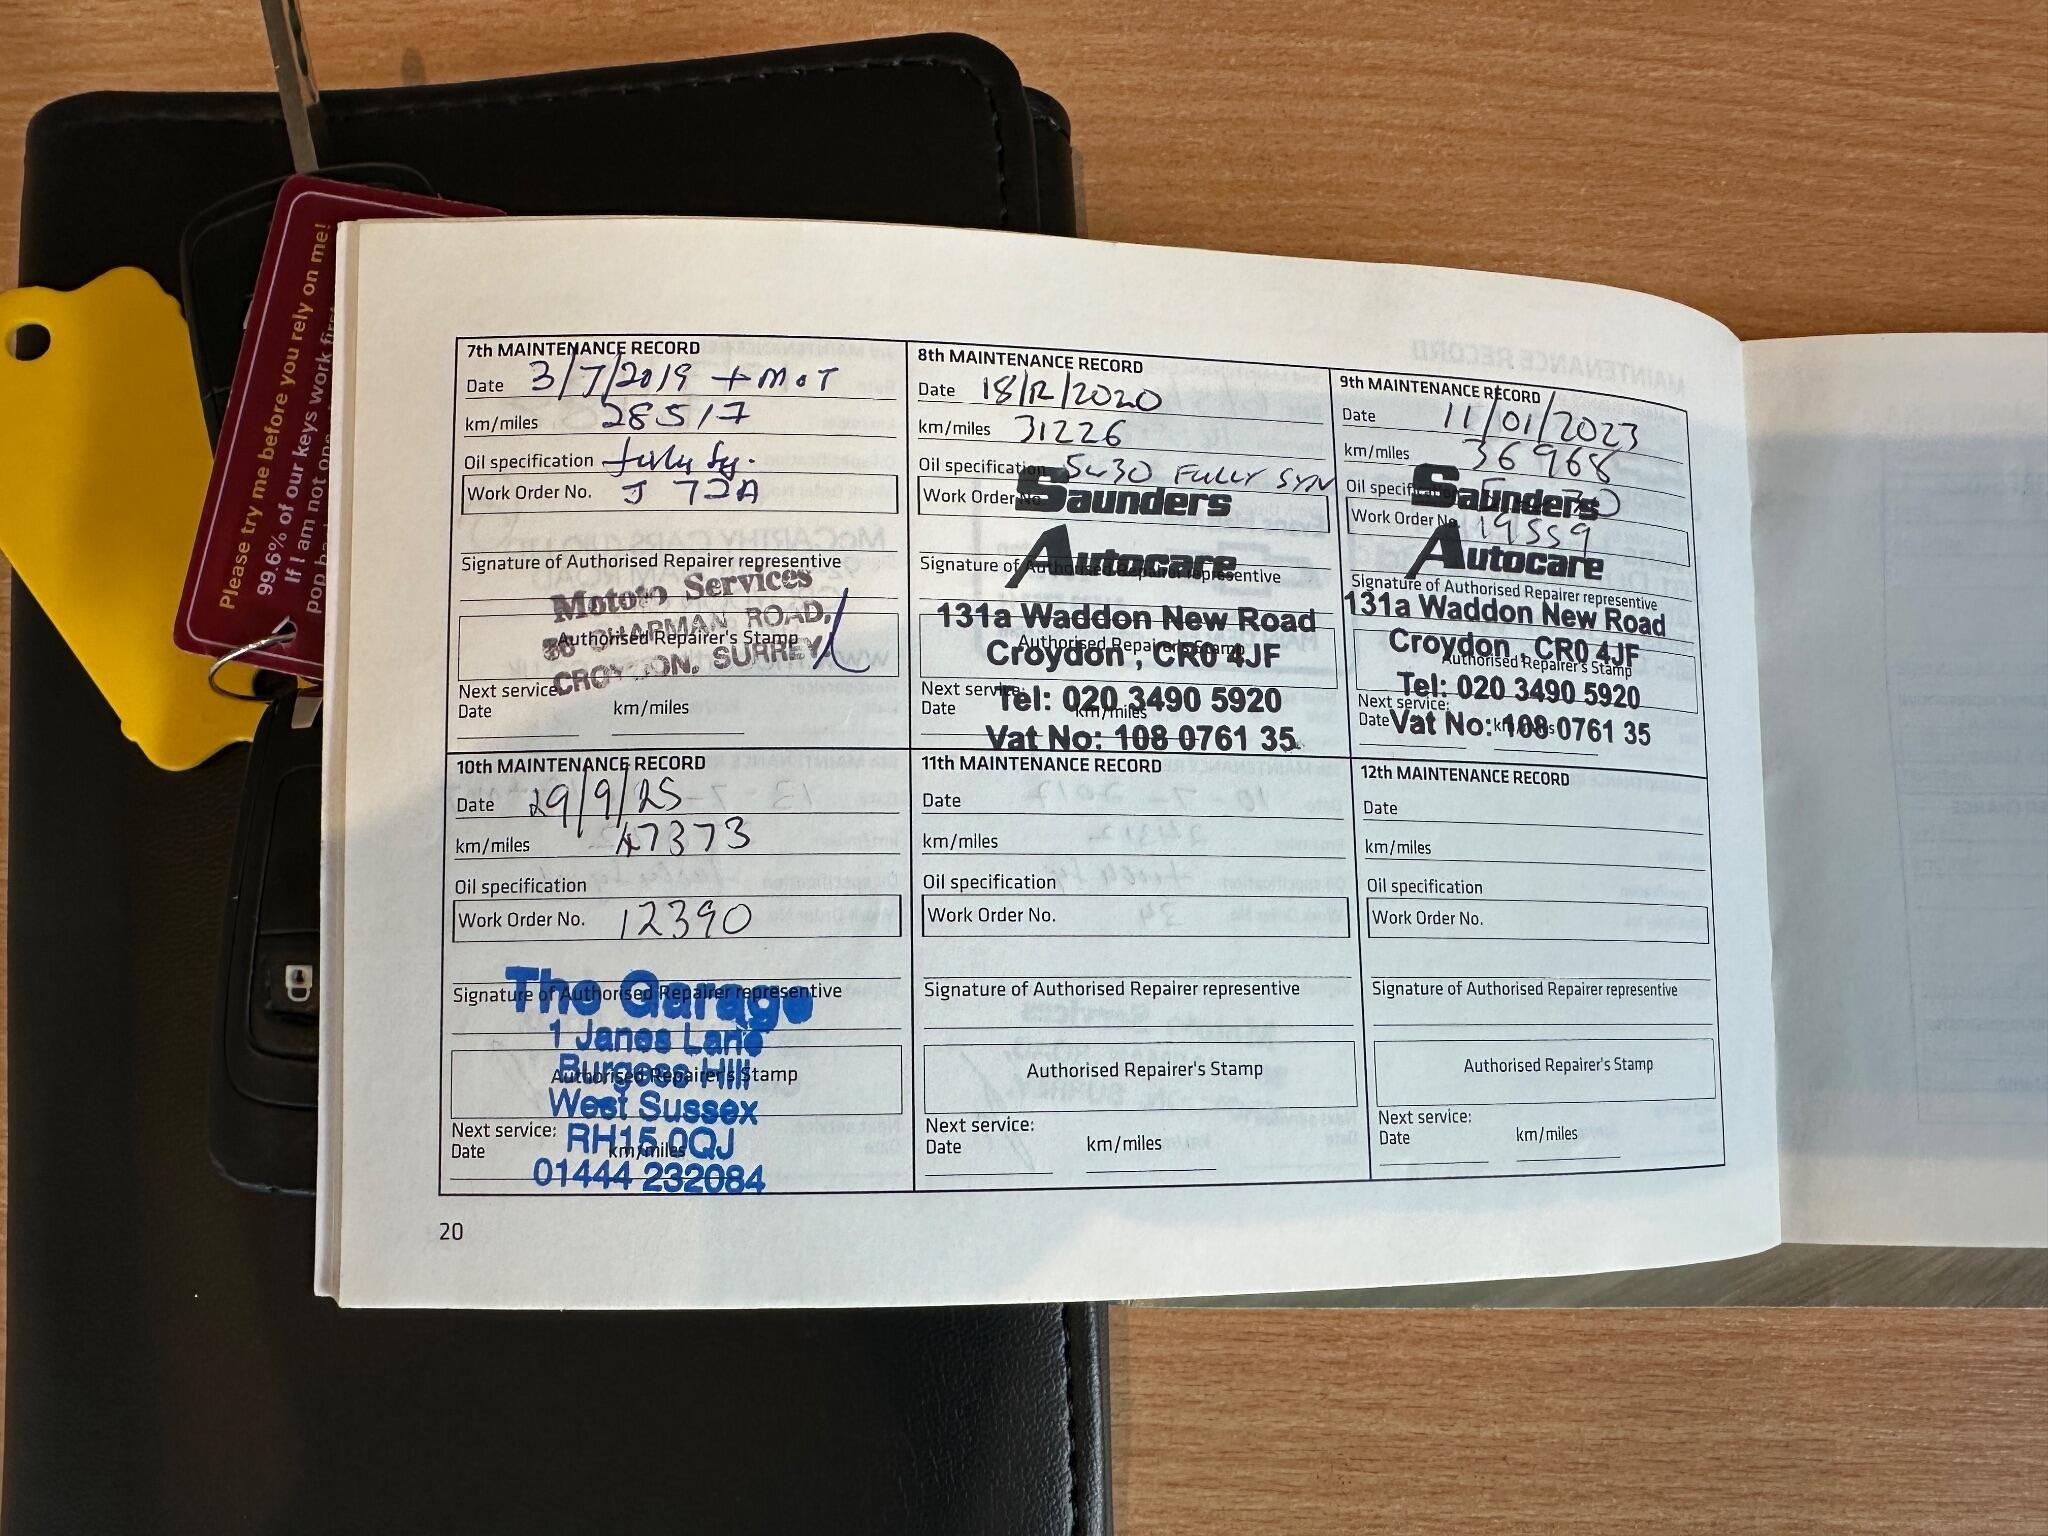 Please try me before you rely on me!
99.6% of our keys work first
If I am not one
pop ba
7th MAINTENANCE RECORD
Date 3/7/2019 + MOT
km/miles 28517
Oil specification fully sy.
Work Order No. J 72A
Signature of Authorised Repairer representative
Mototo Services
CHAPMAN ROAD,
Authorised Repairer's Stamp
CROYDON, SURREY
Next service:
Date km/miles
8th MAINTENANCE RECORD
Date 18/12/2020
km/miles 31226
Oil specification 5w30 FULLY SYN
Work Order No.
Saunders
Autocare
Signature of Authorised Repairer representative
131a Waddon New Road
Authorised Repairer's Stamp
Croydon, CR0 4JF
Next service:
Tel: 020 3490 5920
Date km/miles
Vat No: 108 0761 35
9th MAINTENANCE RECORD
Date 11/01/2023
km/miles 36968
Oil specification 30
Saunders
Work Order No. 19559
Autocare
Signature of Authorised Repairer representative
131a Waddon New Road
Croydon, CR0 4JF
Authorised Repairer's Stamp
Tel: 020 3490 5920
Next service:
Date km/miles
Vat No: 108 0761 35
10th MAINTENANCE RECORD
Date 29/9/25
km/miles 47373
Oil specification
Work Order No. 12390
The Garage
Signature of Authorised Repairer representative
1 Janes Lane
Burgess Hill
Authorised Repairer's Stamp
West Sussex
Next service:
RH15 0QJ
Date km/miles
01444 232084
11th MAINTENANCE RECORD
Date
km/miles
Oil specification
Work Order No.
Signature of Authorised Repairer representative
Authorised Repairer's Stamp
Next service:
Date km/miles
12th MAINTENANCE RECORD
Date
km/miles
Oil specification
Work Order No.
Signature of Authorised Repairer representative
Authorised Repairer's Stamp
Next service:
Date km/miles
20